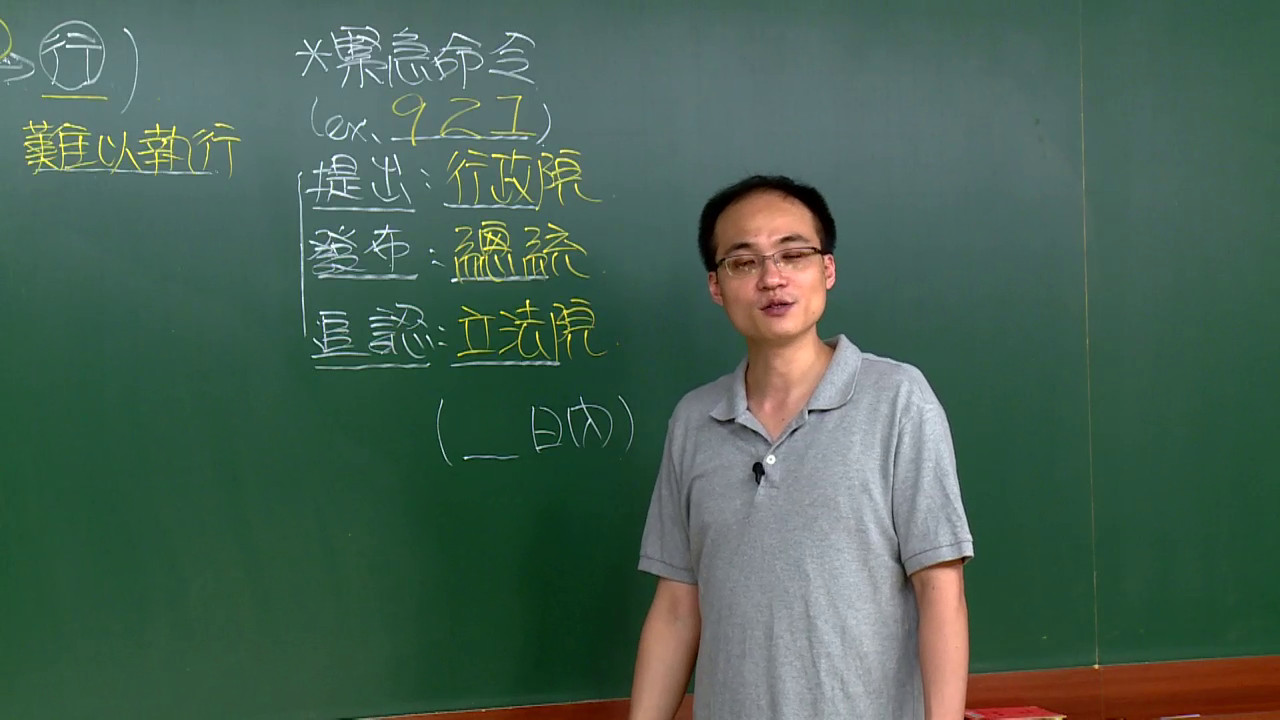 行)
難以執行
*緊急命令
(ex、921)
提出:行政院
發布:總統
追認:立法院
(__日內)